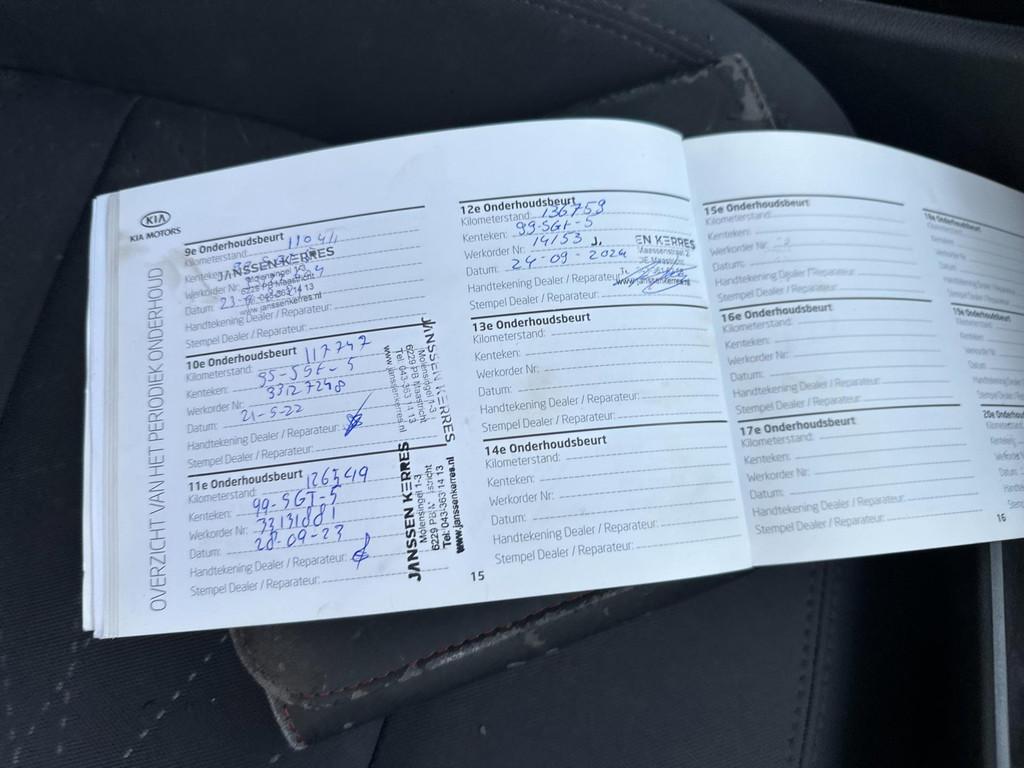 KIA
KIA MOTORS
OVERZICHT VAN HET PERIODIEK ONDERHOUD
9e Onderhoudsbeurt
Kilometerstand:
Kenteken:
Werkorder Nr:
Datum:
Handtekening Dealer / Reparateur:
Stempel Dealer / Reparateur:
JANSSEN KERRES
Molensingel 1-3
6229 PB Maastricht
Tel. 043-363 14 13
www.janssenkerres.nl
10e Onderhoudsbeurt
Kilometerstand: 117747
Kenteken:
Werkorder Nr: 33127248
Datum: 21-5-22
Handtekening Dealer / Reparateur:
Stempel Dealer / Reparateur:
JANSSEN KERRES
Molensingel 1-3
6229 PB Maastricht
Tel. 043-363 14 13
www.janssenkerres.nl
11e Onderhoudsbeurt
Kilometerstand:
Kenteken: 99-SGT-5
Werkorder Nr: 33131881
Datum: 28-09-23
Handtekening Dealer / Reparateur:
Stempel Dealer / Reparateur:
JANSSEN KERRES
Molensingel 1-3
6229 PB
Tel. 043-363 14 13
www.janssenkerres.nl
12e Onderhoudsbeurt
Kilometerstand: 136759
Kenteken: 99-SGT-5
Werkorder Nr: 14153
Datum: 24-09-2024
Handtekening Dealer / Reparateur:
Stempel Dealer / Reparateur:
J. EN KERRES
www.janssenkerres.nl
13e Onderhoudsbeurt
Kilometerstand:
Kenteken:
Werkorder Nr:
Datum:
Handtekening Dealer / Reparateur:
Stempel Dealer / Reparateur:
14e Onderhoudsbeurt
Kilometerstand:
Kenteken:
Werkorder Nr:
Datum:
Handtekening Dealer / Reparateur:
Stempel Dealer / Reparateur:
15
15e Onderhoudsbeurt
Kilometerstand:
Kenteken:
Werkorder Nr:
Datum:
Handtekening Dealer / Reparateur:
Stempel Dealer / Reparateur:
16e Onderhoudsbeurt
Kilometerstand:
Kenteken:
Werkorder Nr:
Datum:
Handtekening Dealer / Reparateur:
Stempel Dealer / Reparateur:
17e Onderhoudsbeurt
Kilometerstand:
Kenteken:
Werkorder Nr:
Datum:
Handtekening Dealer / Reparateur:
Stempel Dealer / Reparateur:
18e Onderhoudsbeurt
Kilometerstand:
Kenteken:
Werkorder Nr:
Datum:
19e Onderhoudsbeurt
Kilometerstand:
Kenteken:
Werkorder Nr:
Datum:
20e Onderhoudsbeurt
Kenteken:
Datum:
16